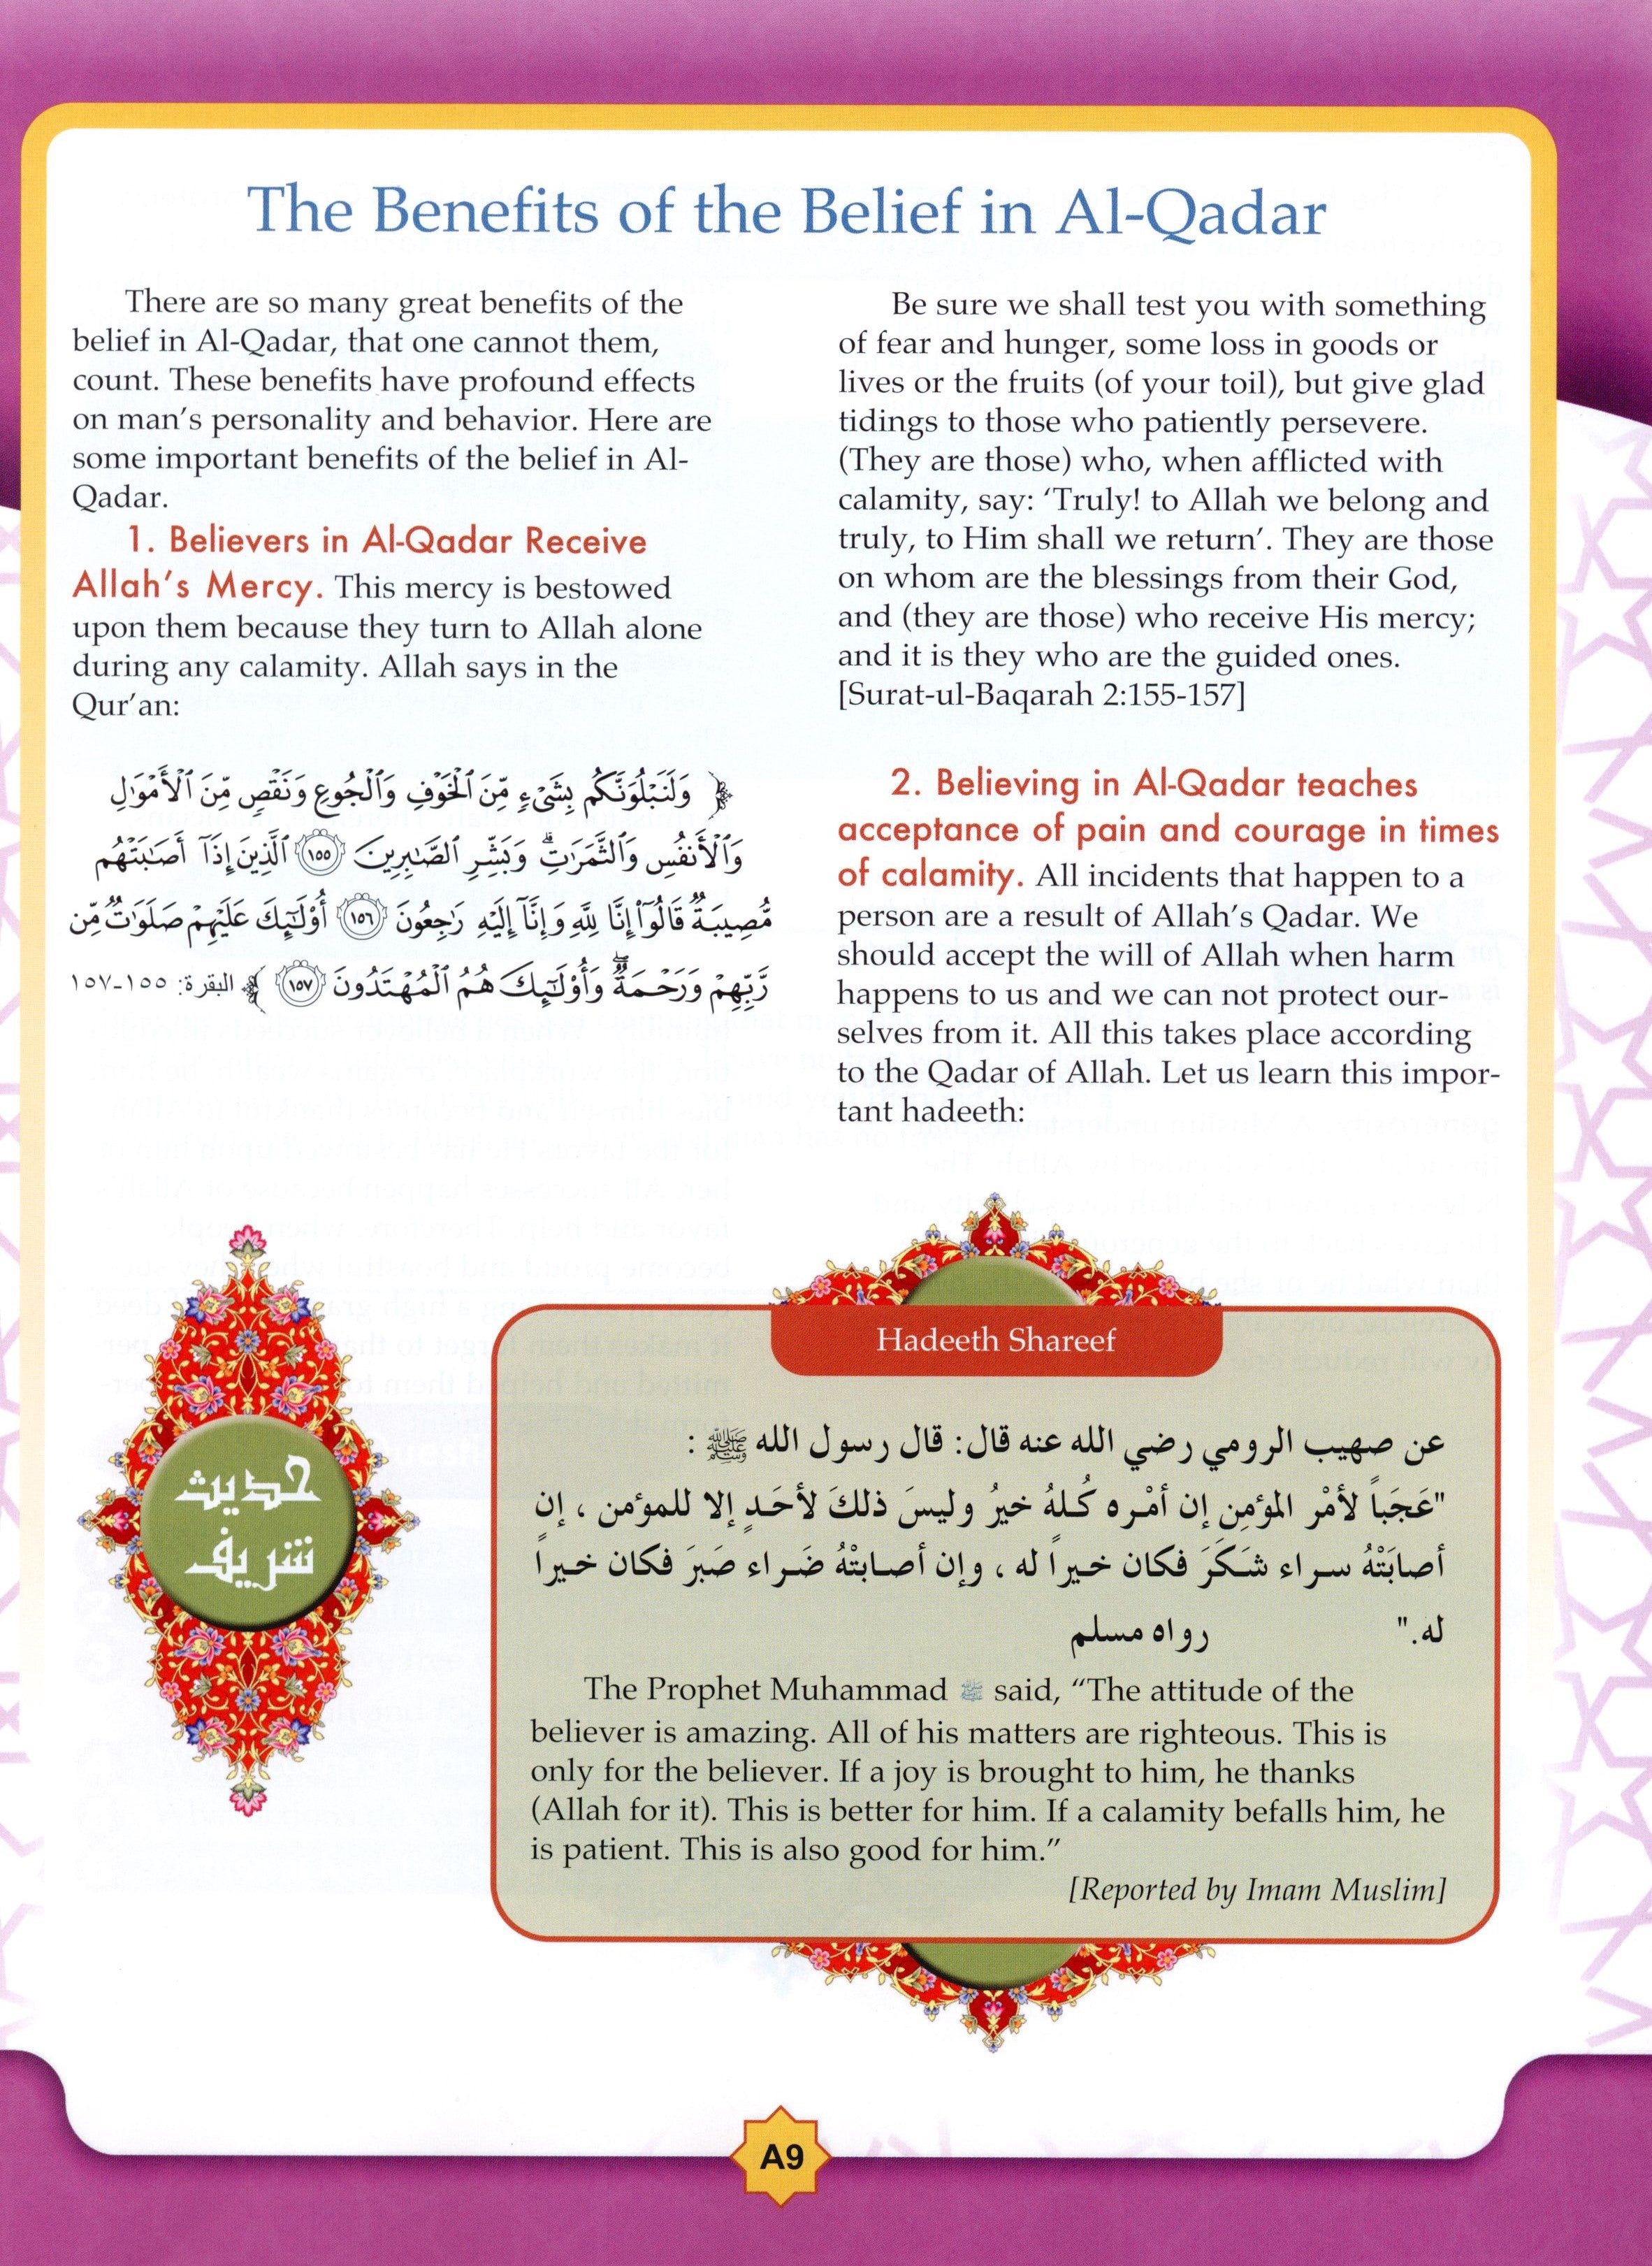 The Benefits of the Belief in Al-Qadar
There are so many great benefits of the
belief in Al-Qadar, that one cannot them,
count. These benefits have profound effects
on man's personality and behavior. Here are
some important benefits of the belief in Al-
Qadar.
1. Believers in Al-Qadar Receive
Allah's Mercy. This mercy is bestowed
upon them because they turn to Allah alone
during any calamity. Allah says in the
Qur'an:
﴿ وَلَنَبْلُوَنَّكُم بِشَىْءٍ مِّنَ ٱلْخَوْفِ وَٱلْجُوعِ وَنَقْصٍ مِّنَ ٱلْأَمْوَٰلِ
وَٱلْأَنفُسِ وَٱلثَّمَرَٰتِ ۗ وَبَشِّرِ ٱلصَّـٰبِرِينَ ١٥٥ ٱلَّذِينَ إِذَآ أَصَـٰبَتْهُم
مُّصِيبَةٌ قَالُوٓا۟ إِنَّا لِلَّهِ وَإِنَّآ إِلَيْهِ رَٰجِعُونَ ١٥٦ أُو۟لَـٰٓئِكَ عَلَيْهِمْ صَلَوَٰتٌ مِّن
رَّبِّهِمْ وَرَحْمَةٌ ۖ وَأُو۟لَـٰٓئِكَ هُمُ ٱلْمُهْتَدُونَ ١٥٧ ﴾ البقرة: ١٥٥-١٥٧
Be sure we shall test you with something
of fear and hunger, some loss in goods or
lives or the fruits (of your toil), but give glad
tidings to those who patiently persevere.
(They are those) who, when afflicted with
calamity, say: 'Truly! to Allah we belong and
truly, to Him shall we return'. They are those
on whom are the blessings from their God,
and (they are those) who receive His mercy;
and it is they who are the guided ones.
[Surat-ul-Baqarah 2:155-157]
2. Believing in Al-Qadar teaches
acceptance of pain and courage in times
of calamity. All incidents that happen to a
person are a result of Allah's Qadar. We
should accept the will of Allah when harm
happens to us and we can not protect our-
selves from it. All this takes place according
to the Qadar of Allah. Let us learn this impor-
tant hadeeth:
حديث
شريف
Hadeeth Shareef
عن صهيب الرومي رضي الله عنه قال: قال رسول الله ﷺ :
"عَجَباً لأمْر المؤمِن إن أمْره كُـلهُ خيرُ وليسَ ذلكَ لأحَـدٍ إلا للمؤمن ، إن
أصابَتْهُ سراء شَـكَرَ فكان خـيراً له ، وإن أصـابتْهُ ضَـراء صَبَرَ فكان خـيراً
له." رواه مسلم
The Prophet Muhammad ﷺ said, "The attitude of the
believer is amazing. All of his matters are righteous. This is
only for the believer. If a joy is brought to him, he thanks
(Allah for it). This is better for him. If a calamity befalls him, he
is patient. This is also good for him."
[Reported by Imam Muslim]
A9